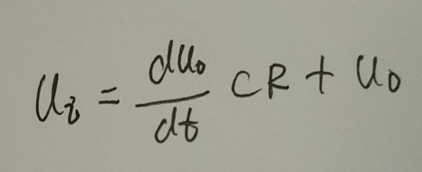 u_i = \frac{du_0}{dt} CR + u_0